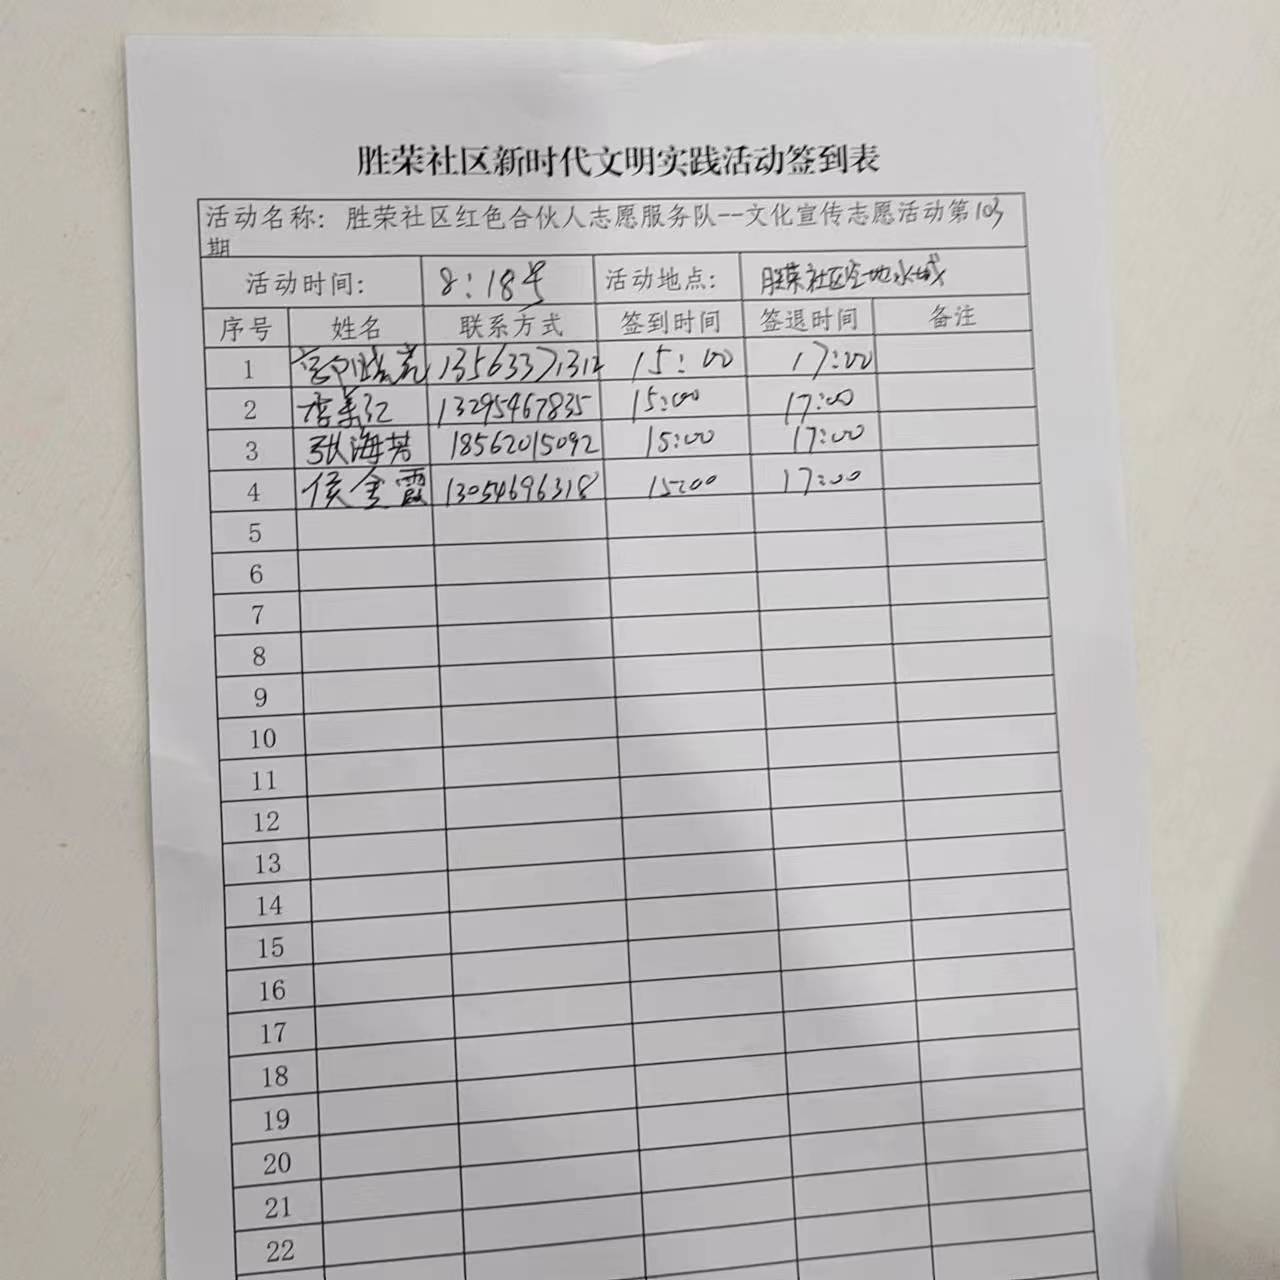 胜荣社区新时代文明实践活动签到表
活动名称：胜荣社区红色合伙人志愿服务队--文化宣传志愿活动第103
期
活动时间： 8:18号 活动地点： 胜荣社区金地水城
序号 姓名 联系方式 签到时间 签退时间 备注
1 13563371312 15:00 17:00
2 李美红 13295467835 15:00 17:00
3 张海芳 18562015092 15:00 17:00
4 侯金霞 13054696318 15:00 17:00
5
6
7
8
9
10
11
12
13
14
15
16
17
18
19
20
21
22